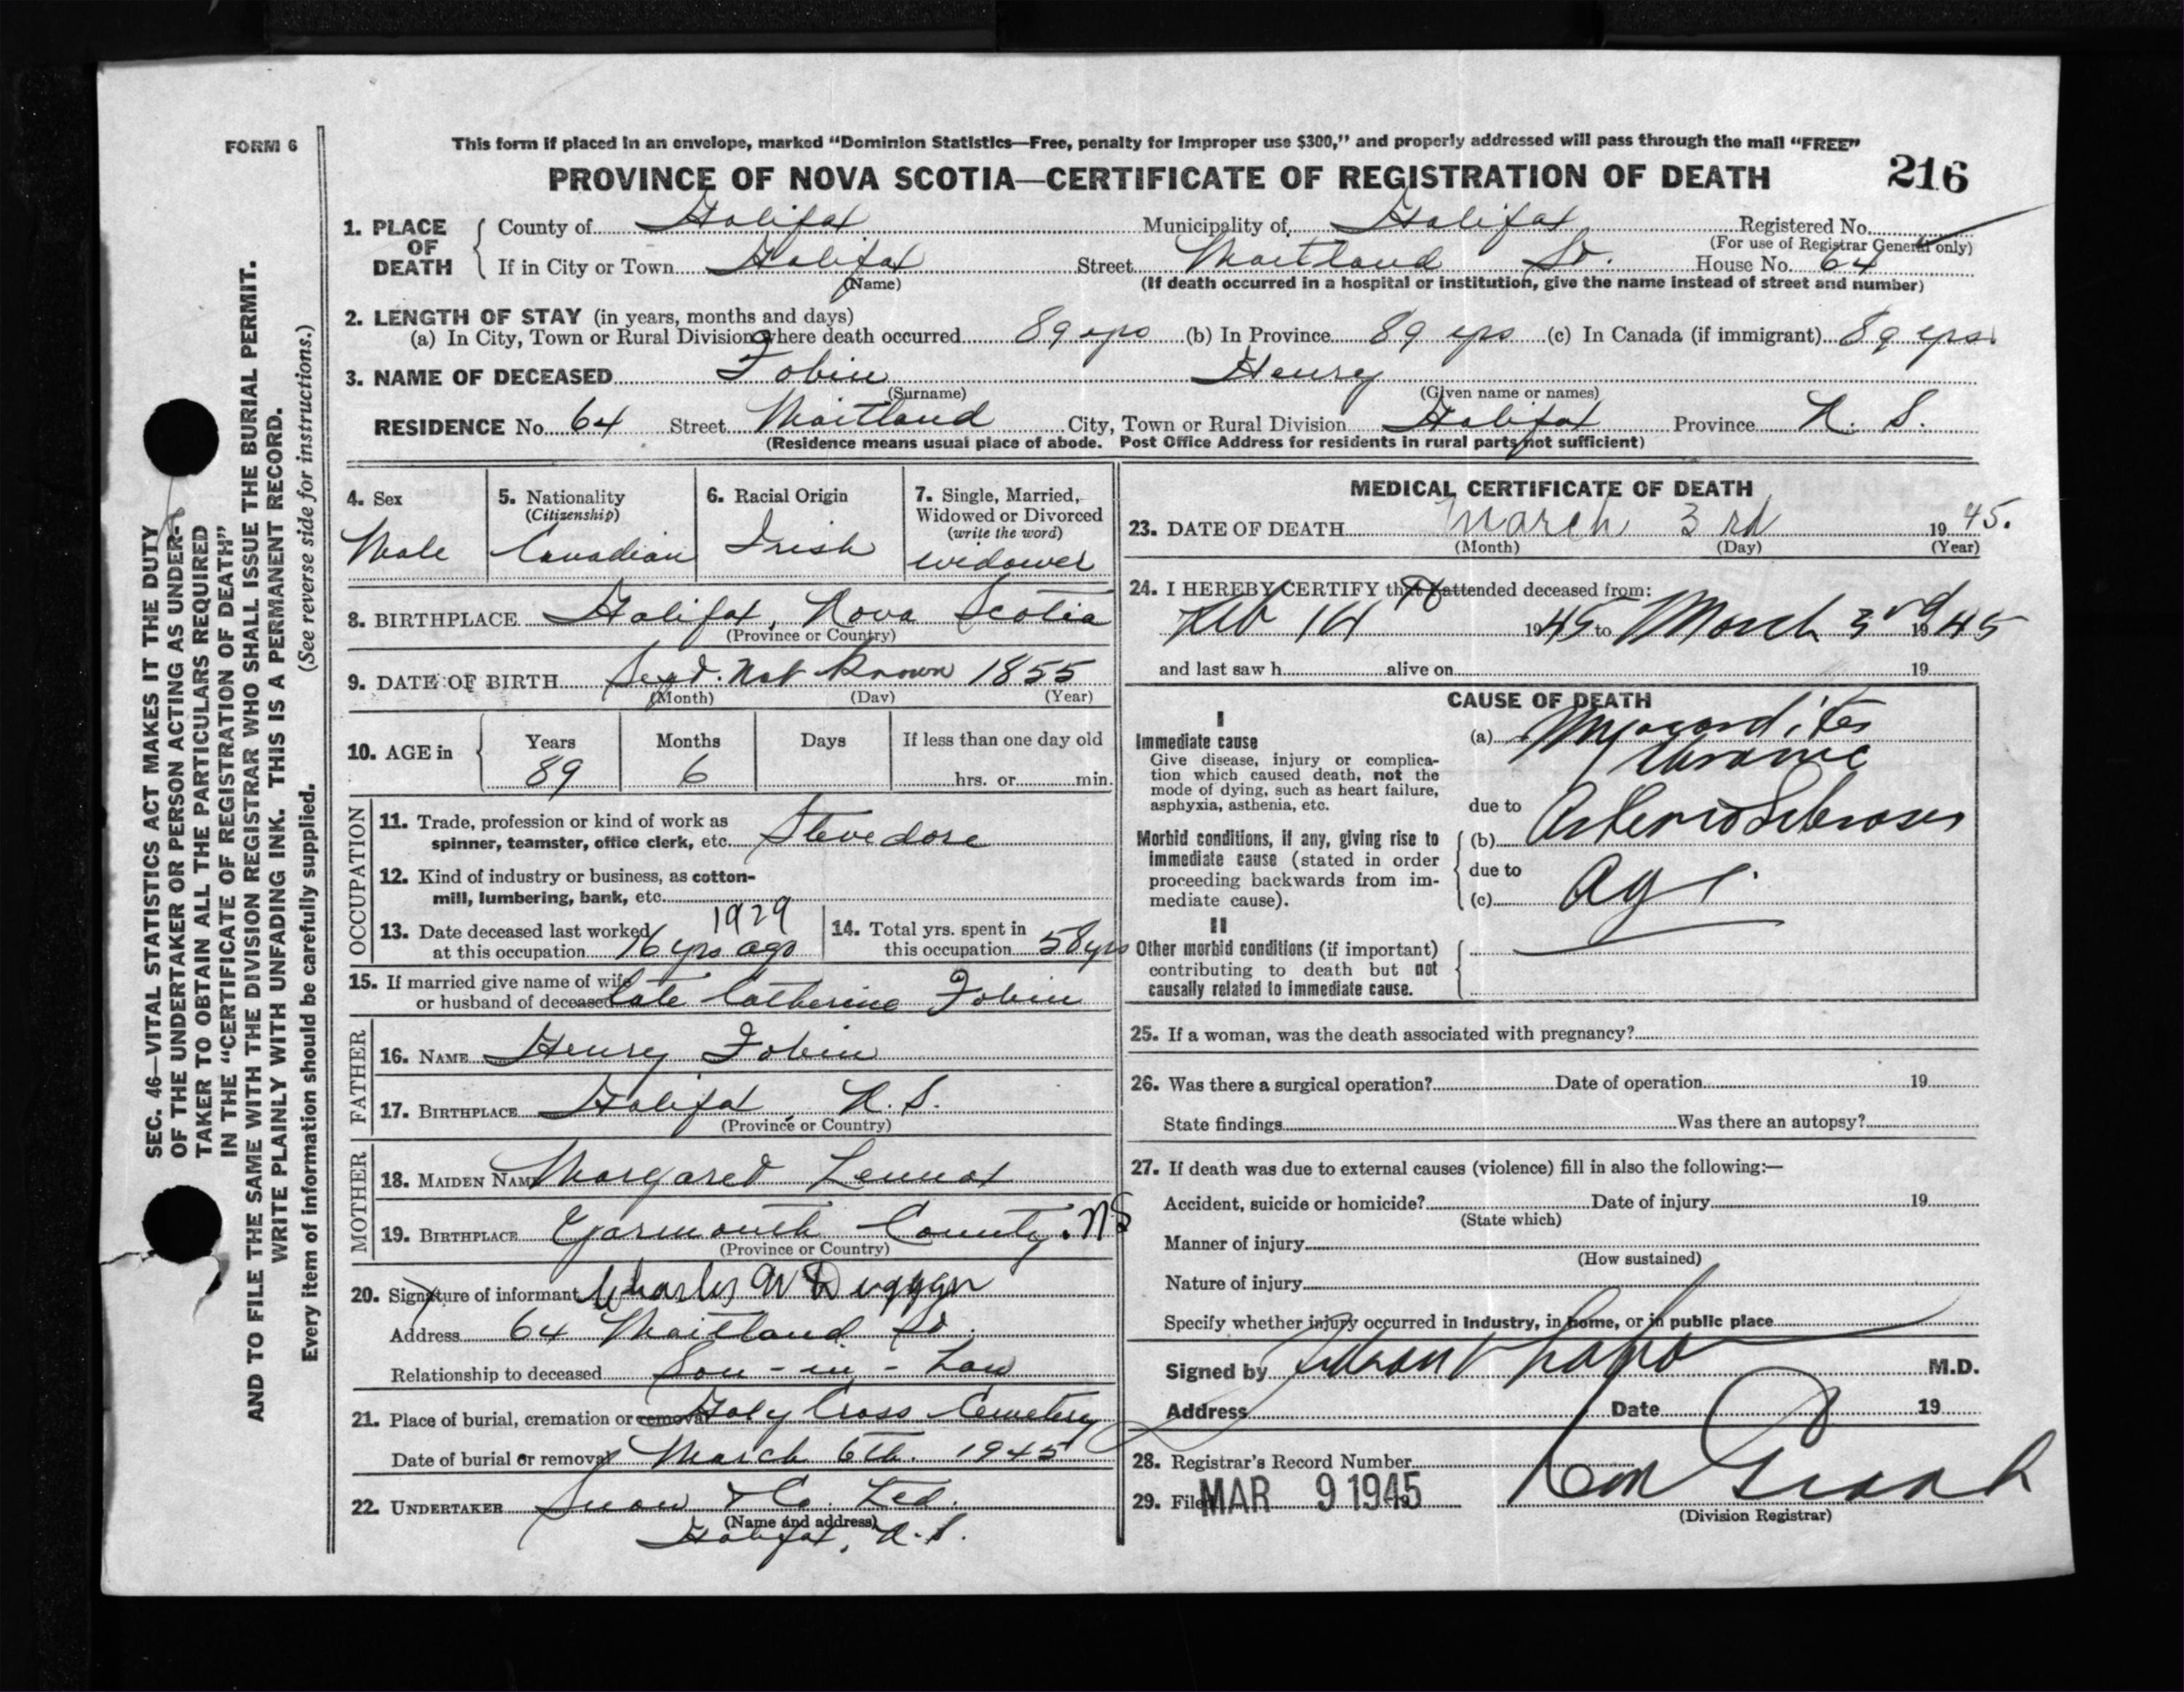 FORM 6
This form if placed in an envelope, marked "Dominion Statistics—Free, penalty for improper use $300," and properly addressed will pass through the mail "FREE"
PROVINCE OF NOVA SCOTIA—CERTIFICATE OF REGISTRATION OF DEATH 216
1. PLACE OF DEATH County of Halifax Municipality of Halifax Registered No.
(For use of Registrar General only)
If in City or Town Halifax Street Maitland St. House No. 64
(Name) (If death occurred in a hospital or institution, give the name instead of street and number)
2. LENGTH OF STAY (in years, months and days)
(a) In City, Town or Rural Division where death occurred 89 yrs (b) In Province 89 yrs (c) In Canada (if immigrant) 89 yrs.
3. NAME OF DECEASED Tobin Henry
(Surname) (Given name or names)
RESIDENCE No. 64 Street Maitland City, Town or Rural Division Halifax Province N. S.
(Residence means usual place of abode. Post Office Address for residents in rural parts not sufficient)
4. Sex Male
5. Nationality (Citizenship) Canadian
6. Racial Origin Irish
7. Single, Married, Widowed or Divorced (write the word) widower
8. BIRTHPLACE Halifax, Nova Scotia
(Province or Country)
9. DATE OF BIRTH Sept. Not Known 1855
(Month) (Day) (Year)
10. AGE in Years 89 Months 6 Days If less than one day old hrs. or min.
OCCUPATION
11. Trade, profession or kind of work as
spinner, teamster, office clerk, etc. Stevedore
12. Kind of industry or business, as cotton-
mill, lumbering, bank, etc.
13. Date deceased last worked 1929
at this occupation 16 yrs ago
14. Total yrs. spent in
this occupation 58 yrs
15. If married give name of wife
or husband of deceased late Catherine Tobin
FATHER
16. NAME Henry Tobin
17. BIRTHPLACE Halifax, N.S.
(Province or Country)
MOTHER
18. MAIDEN NAME Margaret Lennox
19. BIRTHPLACE Yarmouth County. NS
(Province or Country)
20. Signature of informant Charles W Duggan
Address 64 Maitland St.
Relationship to deceased Son-in-Law
21. Place of burial, cremation or removal Holy Cross Cemetery
Date of burial or removal March 6th. 1945
22. UNDERTAKER Snow & Co. Ltd.
(Name and address)
Halifax, N.S.
MEDICAL CERTIFICATE OF DEATH
23. DATE OF DEATH March 3rd 1945.
(Month) (Day) (Year)
24. I HEREBY CERTIFY that I attended deceased from:
Feb 14 1945 to March 3rd 1945
and last saw h alive on 19
CAUSE OF DEATH
I
Immediate cause
Give disease, injury or complica-
tion which caused death, not the
mode of dying, such as heart failure,
asphyxia, asthenia, etc.
(a) Myocarditis
chronic
due to
Morbid conditions, if any, giving rise to
immediate cause (stated in order
proceeding backwards from im-
mediate cause).
(b) Arteriosclerosis
due to
(c) Age.
II
Other morbid conditions (if important)
contributing to death but not
causally related to immediate cause.
25. If a woman, was the death associated with pregnancy?
26. Was there a surgical operation? Date of operation 19
State findings Was there an autopsy?
27. If death was due to external causes (violence) fill in also the following:—
Accident, suicide or homicide? Date of injury 19
(State which)
Manner of injury
(How sustained)
Nature of injury
Specify whether injury occurred in industry, in home, or in public place
Signed by M.D.
Address Date 19
28. Registrar's Record Number
29. Filed MAR 9 1945 19
(Division Registrar)
SEC. 46—VITAL STATISTICS ACT MAKES IT THE DUTY
OF THE UNDERTAKER OR PERSON ACTING AS UNDER-
TAKER TO OBTAIN ALL THE PARTICULARS REQUIRED
IN THE "CERTIFICATE OF REGISTRATION OF DEATH"
AND TO FILE THE SAME WITH THE DIVISION REGISTRAR WHO SHALL ISSUE THE BURIAL PERMIT.
WRITE PLAINLY WITH UNFADING INK. THIS IS A PERMANENT RECORD.
Every item of information should be carefully supplied. (See reverse side for instructions.)